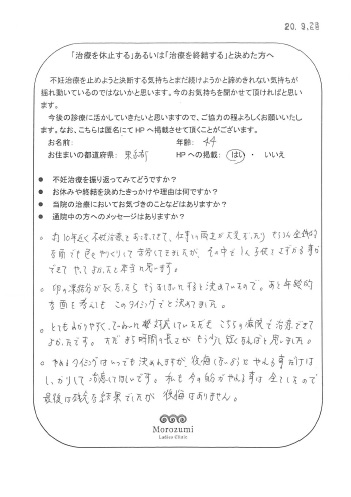 20.9.29
「治療を休止する」あるいは「治療を終結する」と決めた方へ
不妊治療を止めようと決断する気持ちとまだ続けようかと諦めきれない気持ちが
揺れ動いているのではないかと思います。今のお気持ちを聞かせて頂ければと思い
ます。
今後の診療に活かしていきたいと思いますので、ご協力の程よろしくお願いいたし
ます。なお、こちらは匿名にてHPへ掲載させて頂くことがございます。
お名前: 年齢: 44
お住まいの都道府県: 東京都 HPへの掲載: はい ・ いいえ
● 不妊治療を振り返ってみてどうですか?
● お休みや終結を決めたきっかけや理由は何ですか?
● 当院の治療においてお気づきのことなどはありますか?
● 通院中の方へのメッセージはありますか?
。約10年近く不妊治療をおこなってきて、仕事との両立が大変だったり もちろん金銭的
な面でも色々やりくりして苦労してきましたが、その中で1人子供をさずかる事が
できて やってよかったと本当に思います。
。卵の凍結分が 尽きたら もうおしまいにすると決めていたので。あと年齢的
な面を考えても このタイミングでと決めてました。
。とてもわかりやすく、ていねいに 対応していただき こちらの病院で治療できて
よかったです。ただ まち時間の長さが もう少し短くなればと思いました。
。やめるタイミングはいつでも決められますが、後悔しないようにやれる事だけは
しっかりして治療してほしいです。私も今の自分がやれる事は 全てしたので
最後は残念な結果でしたが 後悔はありません。
Morozumi
Ladies Clinic